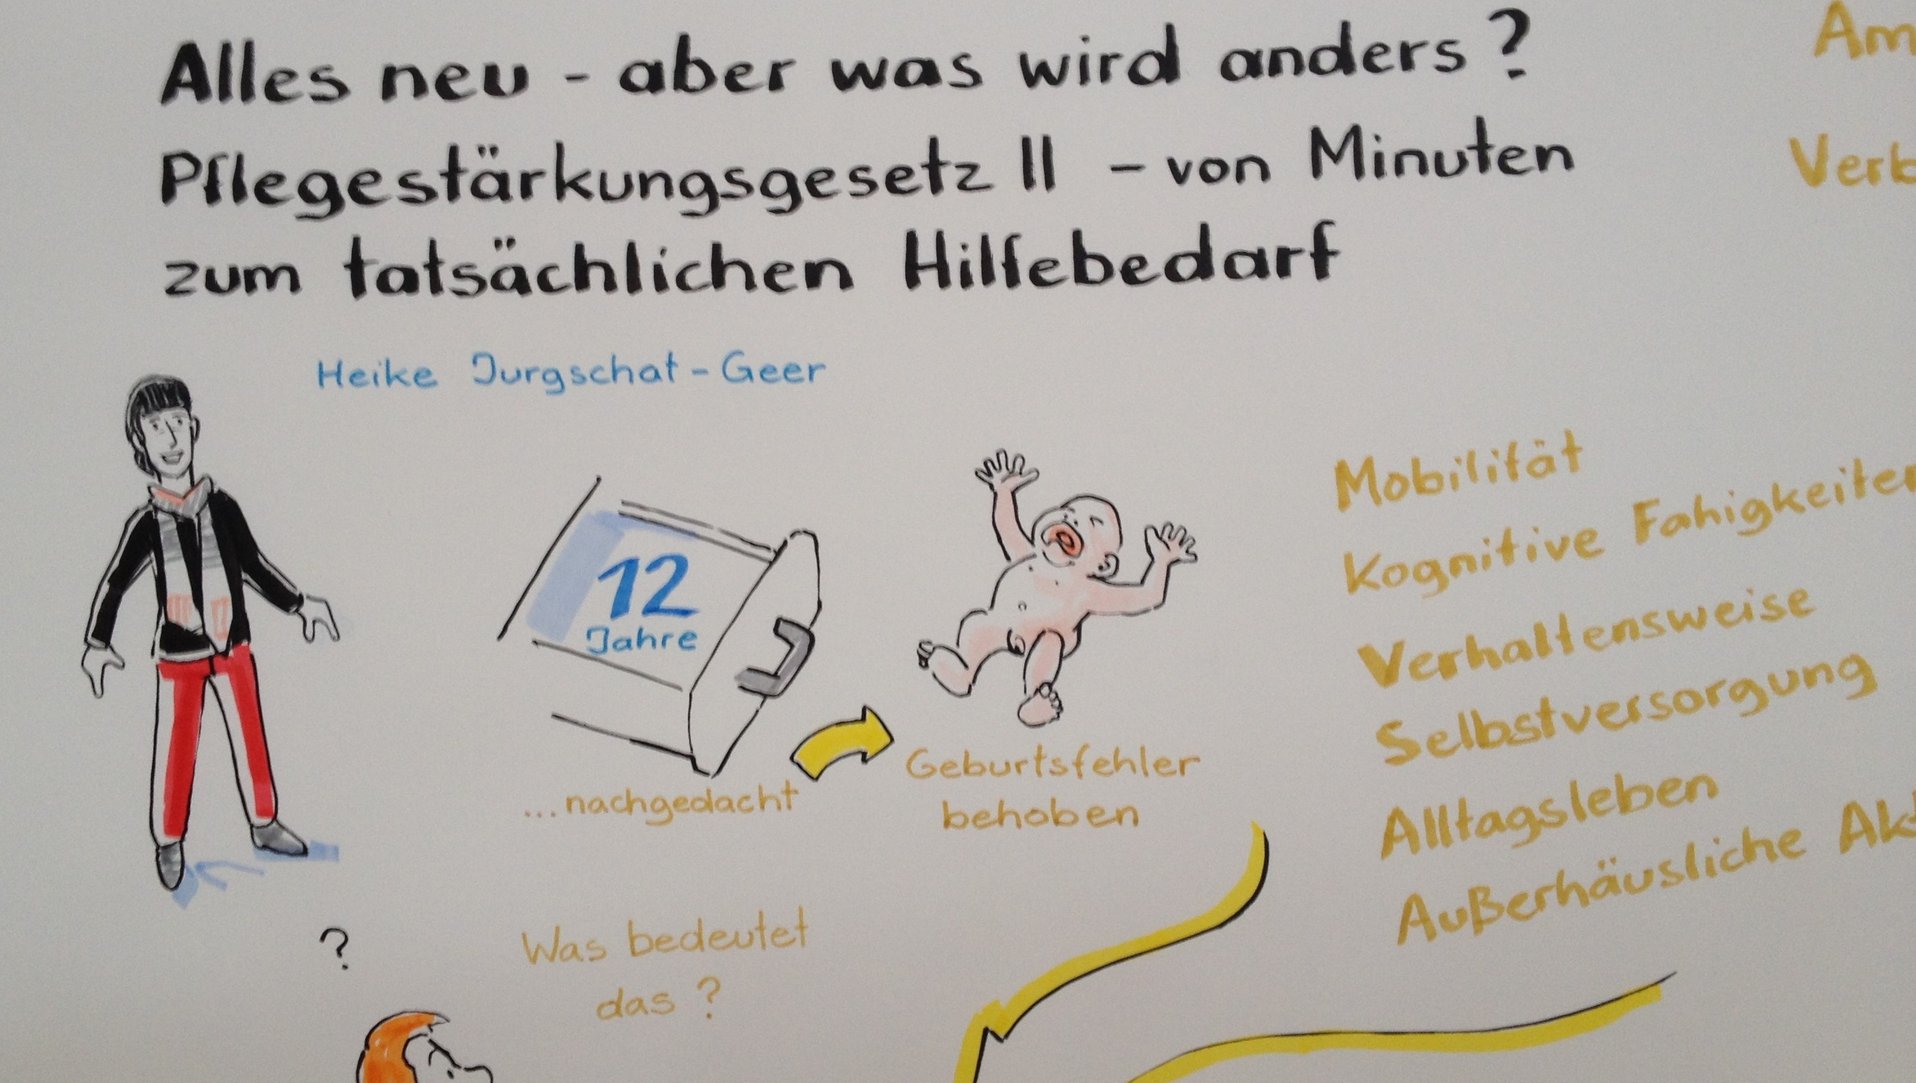 Alles neu - aber was wird anders?
Pflegestärkungsgesetz II - von Minuten
zum tatsächlichen Hilfebedarf
Heike Jurgschat-Geer
12
Jahre
...nachgedacht
Geburtsfehler
behoben
Was bedeutet
das?
?
Am
Verb
Mobilität
Kognitive Fahigkeiten
Verhaltensweise
Selbstversorgung
Alltagsleben
Außerhäusliche Akt